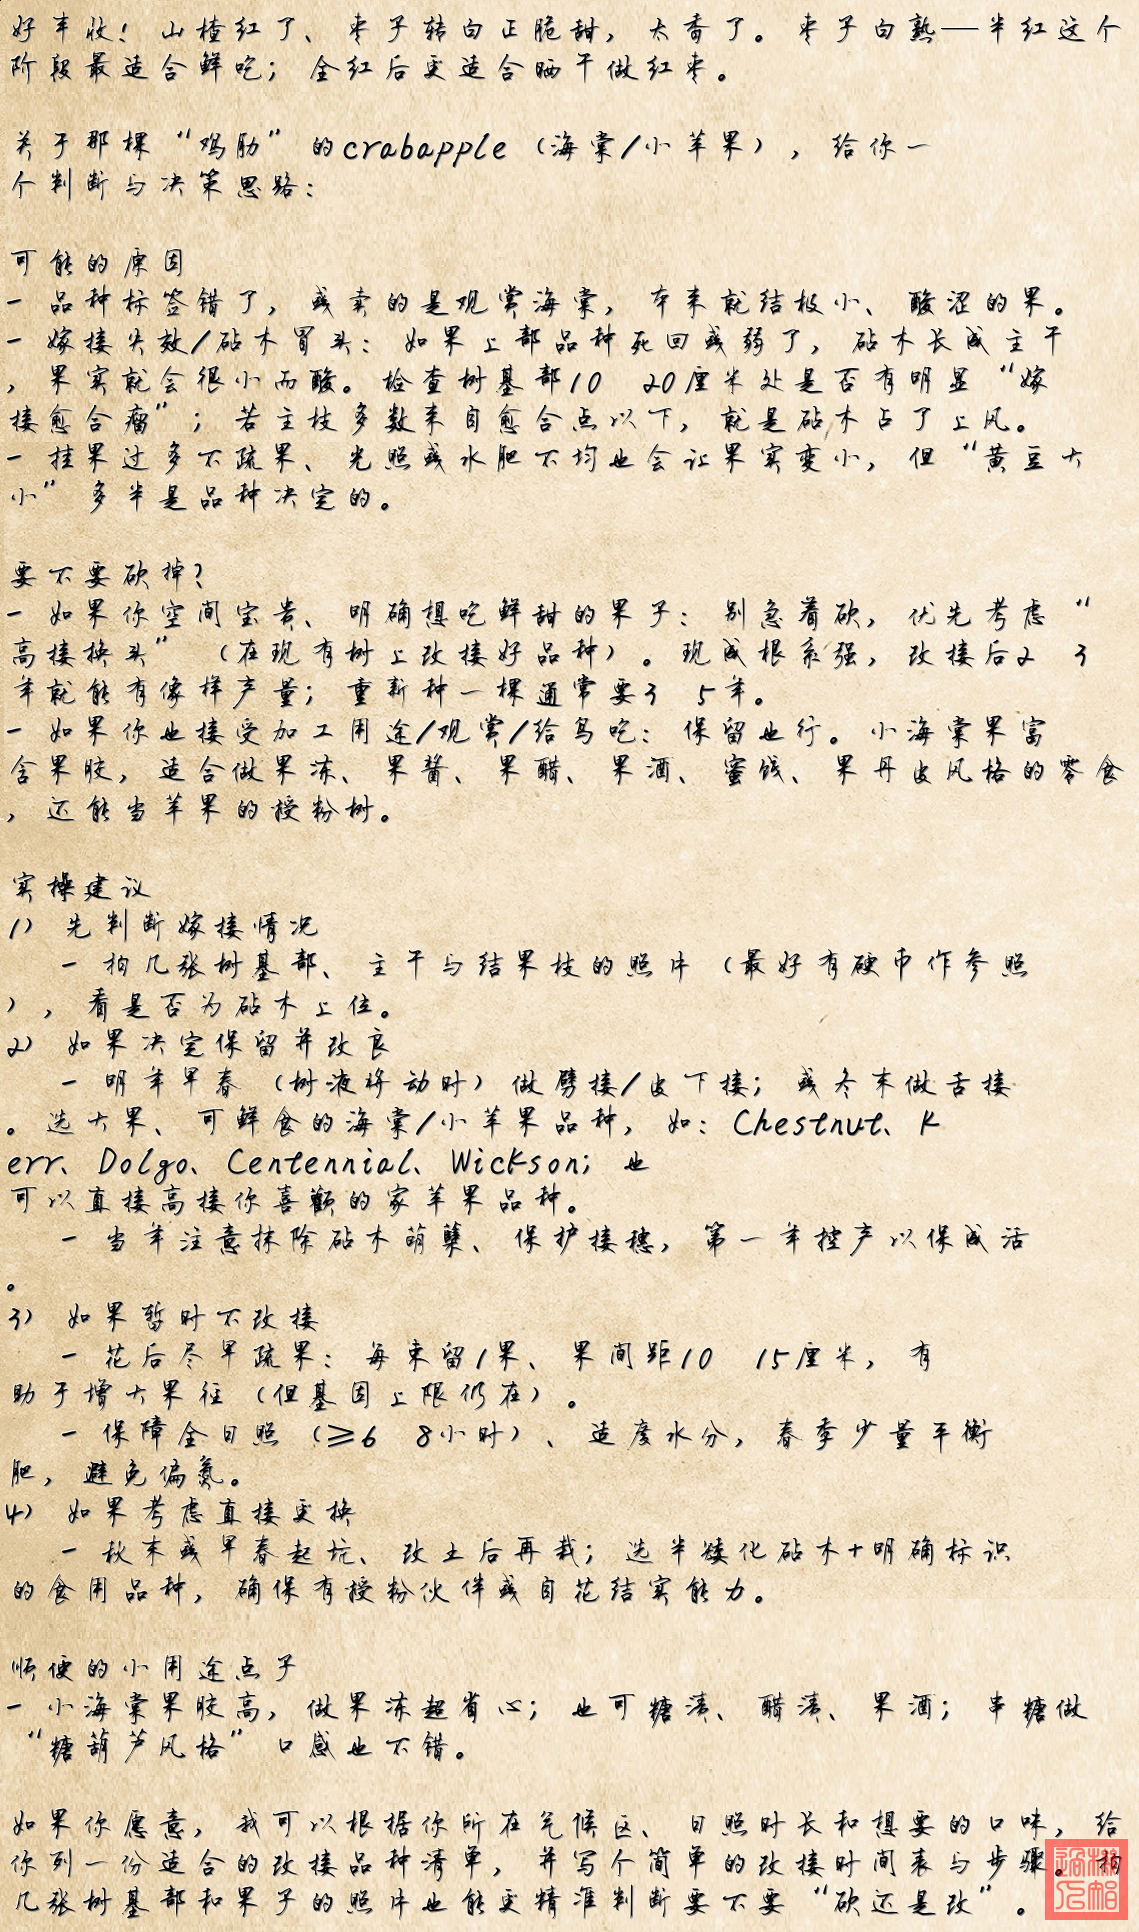 好丰收！山楂红了、枣子转白正脆甜，太香了。枣子白熟——半红这个
阶段最适合鲜吃；全红后更适合晒干做红枣。
关于那棵“鸡肋”的crabapple（海棠/小苹果），给你一
个判断与决策思路：
可能的原因
- 品种标签错了，或卖的是观赏海棠，本来就结极小、酸涩的果。
- 嫁接失效/砧木冒头：如果上部品种死回或弱了，砧木长成主干
，果实就会很小而酸。检查树基部10 20厘米处是否有明显“嫁
接愈合瘤”；若主枝多数来自愈合点以下，就是砧木占了上风。
- 挂果过多不疏果、光照或水肥不均也会让果实变小，但“黄豆大
小”多半是品种决定的。
要不要砍掉？
- 如果你空间宝贵、明确想吃鲜甜的果子：别急着砍，优先考虑“
高接换头”（在现有树上改接好品种）。现成根系强，改接后2 3
年就能有像样产量；重新种一棵通常要3 5年。
- 如果你也接受加工用途/观赏/给鸟吃：保留也行。小海棠果富
含果胶，适合做果冻、果酱、果醋、果酒、蜜饯、果丹皮风格的零食
，还能当苹果的授粉树。
实操建议
1） 先判断嫁接情况
- 拍几张树基部、主干与结果枝的照片（最好有硬币作参照
），看是否为砧木上位。
2） 如果决定保留并改良
- 明年早春（树液将动时）做劈接/皮下接；或冬末做舌接
。选大果、可鲜食的海棠/小苹果品种，如：Chestnut、K
err、Dolgo、Centennial、Wickson；也
可以直接高接你喜欢的家苹果品种。
- 当年注意抹除砧木萌蘖、保护接穗，第一年控产以保成活
。
3） 如果暂时不改接
- 花后尽早疏果：每束留1果、果间距10 15厘米，有
助于增大果径（但基因上限仍在）。
- 保障全日照（≥6 8小时）、适度水分，春季少量平衡
肥，避免偏氮。
4） 如果考虑直接更换
- 秋末或早春起坑、改土后再栽；选半矮化砧木+明确标识
的食用品种，确保有授粉伙伴或自花结实能力。
顺便的小用途点子
- 小海棠果胶高，做果冻超省心；也可糖渍、醋渍、果酒；串糖做
“糖葫芦风格”口感也不错。
如果你愿意，我可以根据你所在气候区、日照时长和想要的口味，给
你列一份适合的改接品种清单，并写个简单的改接时间表与步骤。拍
几张树基部和果子的照片也能更精准判断要不要“砍还是改”。